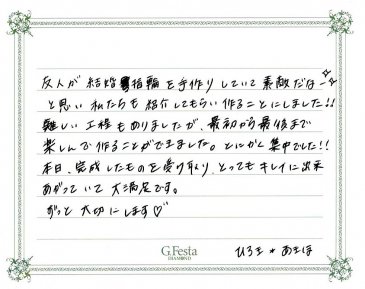 友人が結婚指輪を手作りしていて素敵だな〜
と思い私たちも紹介してもらい作ることにしました!!
難しい工程もありましたが、最初から最後まで
楽しんで作ることができました。とにかく集中でした!!
本日、完成したものを受け取り、とってもキレイに出来
あがっていて大満足です。
ずっと大切にします♡
G.Festa
DIAMOND
ひろき * あきほ